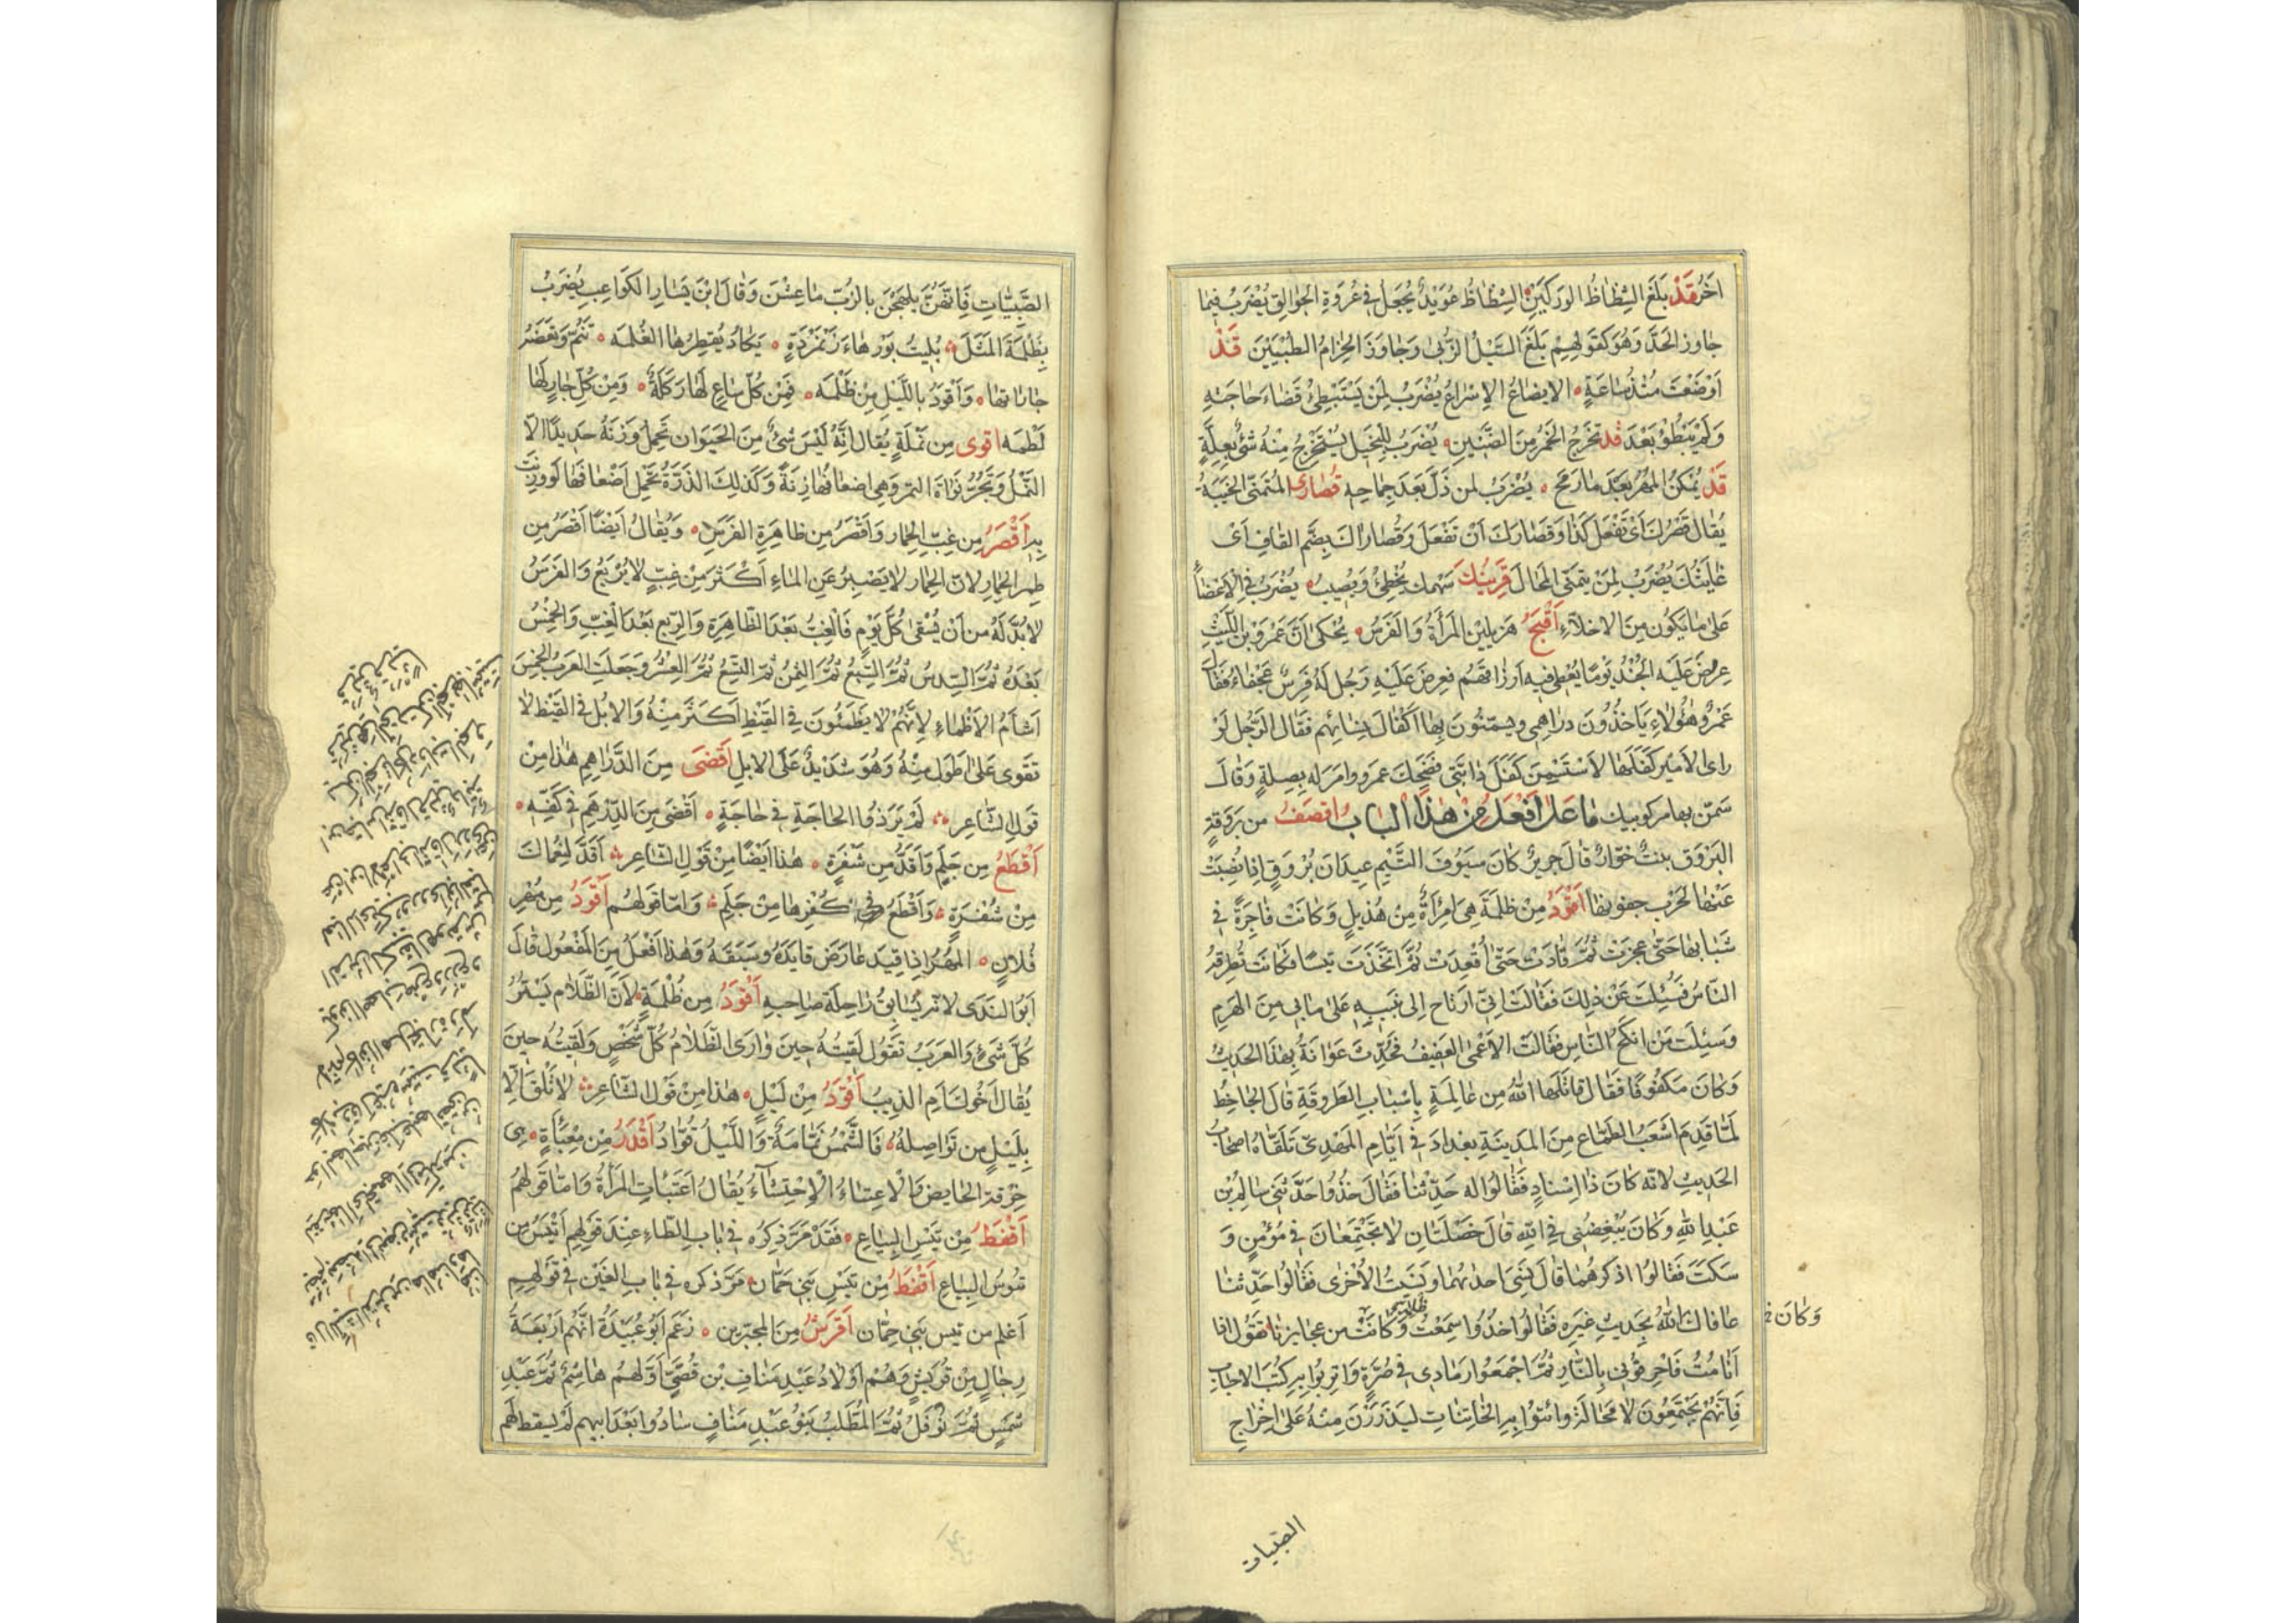 آخر قَدْ بَلَغَ الشِّظَاظُ الوَرِكَيْنِ الشِّظَاظُ عُوَيْدٌ يُجْعَلُ فِي عُرْوَةِ الجُوَالِقِ يُضْرَبُ فِيمَا
جَاوَزَ الحَدَّ وَهُوَ كَقَوْلِهِمْ بَلَغَ السَّيْلُ الزُّبَى وَجَاوَزَ الحِزَامُ الطُّبْيَيْنِ قَدْ
أَوْضَعْتَ مُنْذُ سَاعَةٍ الايضاعُ الإِسْرَاعُ يُضْرَبُ لِمَنْ يَسْتَبْطِئُ قَضَاءَ حَاجَتِهِ
وَلَمْ يَبْطُؤْ بَعْدُ قَدْ تَخْرُجُ الخَمْرُ مِنَ الضَّنِينِ يُضْرَبُ لِلْبَخِيلِ يُسْتَخْرَجُ مِنْهُ شَئٌ بِعِلَّةٍ
قَدْ يُمْكِنُ المُهْرُ بَعْدَ مَا رَمَحَ يُضْرَبُ لمن ذَلَّ بَعْدَ جِمَاحِهِ قُصَارَى المُتَمَنِّي الخَيْبَةُ
يُقَالُ قَصْرُكَ أَنْ تَفْعَلَ كَذَا وَقَصَارَكَ أَنْ تَفْعَلَ وَقُصَارَاكَ بِضَمِّ القَافِ أَى
غَايَتُكَ يُضْرَبُ لِمَنْ يَتَمَنَّى المُحَالَ قَرِينُكَ سَهْمُكَ يُخْطِئُ وَيُصِيبُ يُضْرَبُ فِي الإِغْضَاءِ
عَلَى مَا يَكُونُ مِنَ الاخِلَّاءِ أَقْبَحُ هَزِيلَيْنِ المَرْأَةُ وَالفَرَسُ يُحْكَى أَنَّ عَمْرَو بْنَ اللَّيْثِ
عُرِضَ عَلَيْهِ الجُنْدُ يَوْمًا يُعْطِى فِيهِ أَرْزَاقَهُمْ فَعُرِضَ عَلَيْهِ رَجُلٌ لَهُ فَرَسٌ عَجْفَاءُ فَقَالَ
عَمْرٌو هٰؤُلَاءِ يَأْخُذُونَ دَرَاهِمِي وَيُسَمِّنُونَ بِهَا أَكْفَالَ نِسَائِهِمْ فَقَالَ الرَّجُلُ لَوْ
رَاى الأَمِيرُ كَفَلَهَا لَاسْتَسْمَنَ كَفَلَ دَابَّتِي فَضَحِكَ عَمْرٌو وَأَمَرَ لَهُ بِصِلَةٍ وَقَالَ
سَمِّنْ بِهَا مَرْكُوبَيْكَ مَا عَلَى أَفْعَلَ مِنْ هٰذَا الباب أَقْصَفُ من بَرْوَقَةٍ
البَرْوَقُ نَبْتٌ خَوَّارٌ قَالَ جَرِيرٌ كَأَنَّ سُيُوفَ التَّيْمِ عِيدَانُ بَرْوَقٍ إِذَا نُضِيَتْ
عَنْهَا لِحَرْبٍ جفونها أَقْوَدُ مِنْ ظُلْمَةَ هِىَ امْرَأَةٌ مِنْ هُذَيْلٍ وَكَانَتْ فَاجِرَةً فِي
شَبَابِهَا حَتَّى عَجَزَتْ ثُمَّ قَادَتْ حَتَّى أُقْعِدَتْ ثُمَّ اتَّخَذَتْ تَيْسًا فَكَانَتْ تُطْرِقُهُ
النَّاسَ فَسُئِلَتْ عَنْ ذٰلِكَ فَقَالَتْ إِنِّي أَرْتَاحُ إِلَى نَبِيبِهِ عَلَى مَا بِي مِنَ الهَرَمِ
وَسُئِلَتْ مَنْ أَنْكَحُ النَّاسِ فَقَالَتْ الأَعْمَى العَفِيفُ فَحُدِّثَ عَوَانَةُ بِهٰذَا الحَدِيثِ
وَكَانَ مَكْفُوفًا فَقَالَ قَاتَلَهَا اللهُ مِنْ عَالِمَةٍ بِأَسْبَابِ الطَّرُوقَةِ قَالَ الجَاحِظُ
لَمَّا قَدِمَ أَشْعَبُ الطَّمَّاع مِنَ المَدِينَةِ بَغْدَادَ فِي أَيَّامِ المَهْدِيِّ تَلَقَّاهُ أَصْحَابُ
الحَدِيثِ لأَنَّهُ كَانَ ذَا إِسْنَادٍ فَقَالُوا لَهُ حَدِّثْنَا فَقَالَ خُذُوا حَدَّثَنِي سَالِمُ بْن
عَبْدِ اللهِ وَكَانَ يُبْغِضُنِي فِي اللهِ قَالَ خَصْلَتَانِ لَا تَجْتَمِعَانِ فِي مُؤْمِنٍ وَ
سَكَتَ فَقَالُوا اذْكُرْهُمَا قَالَ نَسِيَ إِحْدَاهُمَا وَنَسِيتُ الأُخْرَى فَقَالُوا حَدِّثْنَا
عَافَاكَ اللهُ بِحَدِيثٍ غَيْرِهِ فَقَالُوا خُذُوا سَمِعْتُ ظُلْمَةَ وَكَانَتْ مِنْ عَجَايِزِنَا تَقُولُ إِذَا
وَكَانَ
أَنَا مُتُّ فَأَحْرِقُونِي بِالنَّارِ ثُمَّ اجْمَعُوا رَمَادِي فِي صُرَّةٍ وَأَتْرِبُوا بِهِ كُتُبَ الاحباب
فَإِنَّهُمْ يَجْتَمِعُونَ لَا مَحَالَةَ وَائْتُوا بِهِ الخَاتِنَاتِ لِيَذْرُرْنَ مِنْهُ عَلَى إِخْرَاجِ
الصبيات
الصَّبِيَّاتِ فَإِنَّهُنَّ يَلْهَجْنَ بِالزُّبِّ مَا عِشْنَ وَقَالَ ابْنُ يَسَارِ الكَوَاعِبِ يُضْرَبُ
بِظُلْمَةَ المَثَلُ بُلِيتُ بِوَرْهَاءَ زَنْمَرْدَةٍ يَكَادُ يُقَطِّرُهَا الغُلْمَه تَنُمُّ وَتَعْضَهُ
جَارَاتِهَا وَأَقْوَدُ بِاللَّيْلِ مِنْ ظُلْمَه فَمِنْ كُلِّ سَاعٍ لَهَا رَكْلَةٌ وَمِنْ كُلِّ جَارٍ لَهَا
لَطْمَه اقوى مِن نَمْلَةٍ يُقَالُ إِنَّهُ لَيْسَ شَئٌ مِنَ الحَيَوَانِ تَحْمِلُ وَزْنَهُ حَدِيدًا الَّا
النَّمْلُ وَتَجُرُّ نَوَاةَ التَّمْرِ وَهِىَ أَضْعَافُهَا زِنَةً وَكَذٰلِكَ الذَّرَّةُ تَحْمِلُ أَضْعَافَهَا لَوْ وُزِنَتْ
بِهِ أَقْصَرُ مِن غِبِّ الحِمَارِ وَأَقْصَرُ مِن ظَاهِرَةِ الفَرَسِ وَيُقَالُ أَيْضًا أَقْصَرُ مِن
ظِمْءِ الحِمَارِ لأَنَّ الحِمَارَ لَا يَصْبِرُ عَنِ المَاءِ أَكْثَرَ مِنْ غِبٍّ لَا يُرْبِعُ وَالفَرَسُ
لَا بُدَّ لَهُ مِن أَنْ يُسْقَى كُلَّ يَوْمٍ فَالغِبُّ بَعْدَ الظَّاهِرَةِ وَالرِّبْعُ بَعْدَ الغِبِّ وَالخِمْسُ
بَعْدَهُ ثُمَّ السِّدسُ ثُمَّ السِّبْعُ ثُمَّ الثِّمْنُ ثُمَّ التِّسْعُ ثُمَّ العِشْرُ وَجَعَلَتِ العَرَبُ الخِمْسَ
أَشْأَمَ الأَظْمَاءِ لأَنَّهُمْ لَا يُظْمِئُونَ فِي القَيْظِ أَكْثَرَ مِنْهُ وَالإِبِلُ فِي القَيْظِ لَا
تَقْوَى عَلَى أَطْوَلَ مِنْهُ وَهُوَ شَدِيدٌ عَلَى الإِبِلِ أَقْضَى مِنَ الدَّرَاهِمِ هٰذَا مِنْ
قَوْلِ الشَّاعِرِ لَمْ يَرَ ذُو الحَاجَةِ فِي حَاجَةٍ أَقْضَى مِنَ الدِّرْهَمِ فِي كَفِّهِ
أَقْطَعُ مِن جَلَمٍ وَأَقَدُّ مِن شَفْرَةٍ هٰذَا أَيْضًا مِنْ قَوْلِ الشَّاعِرِ أَقَدُّ لِنُعْمَاكَ
مِنْ شَفْرَةٍ وَأَقْطَعُ فِي كُفْرِهَا مِنْ جَلَمِ وَامَّا قَوْلُهُم أَقْوَدُ مِن مُهْرِ
فُلَانٍ المُهْرُ إِذَا قِيدَ عَارَضَ قَايِدَهُ وَسَبَقَهُ وَهٰذَا أَفْعَلُ مِنَ المَفْعُولِ قَالَ
أَبُو النَّدَى لأَنَّهُ يُسَابِقُ رَاحِلَةَ صَاحِبِهِ أَقْوَدُ مِن ظُلْمَةٍ لأَنَّ الظَّلَامَ يَسْتُرُ
كُلَّ شَئٍ وَالعَرَبُ تَقُولُ لَقِيتُهُ حِينَ وَارَى الظَّلَامُ كُلَّ شَخْصٍ وَلَقِيتُهُ حِينَ
يُقَالُ أَخُوكَ أَمِ الذِيبُ أَقْوَدُ مِنْ لَيْلٍ هٰذَا مِنْ قَوْلِ الشَّاعِرِ لَا تَلْقَ إِلَّا
بِلَيْلٍ مَن تُوَاصِلُهُ فَالشَّمْسُ نَمَّامَةٌ وَاللَّيْلُ قَوَّادُ أَقْذَرُ مِنْ مِعْبَأَةٍ هِىَ
خِرْقَةُ الحَايِضِ وَالإِعْتِبَاءُ الإِحْتِشَاءُ يُقَالُ اعْتَبَأَتِ المَرْأَةُ وَامَّا قَوْلُهُمْ
أَقْفَطُ مِنْ تَيْسِ البِيَاعِ فَقَدْ مَرَّ ذِكْرُهُ فِي بَابِ التَّاءِ عِنْدَ قَوْلِهِمْ أَتْيَسُ مِن
تُيُوسِ البِيَاعِ أَقْفَطُ مِنْ تَيْسِ بَنِي حِمَّانَ مَرَّ ذِكْرُهُ فِي بَابِ الغَيْنِ فِي قَوْلِهِمْ
أَغْلَمُ مِن تَيْسِ بَنِي حِمَّانَ أَقْرَشُ مِنَ المُجَبِّرِينَ زَعَمَ أَبُو عُبَيْدَةَ أَنَّهُمْ أَرْبَعَةُ
رِجَالٍ مِنْ قُرَيْشٍ وَهُمْ أَوْلَادُ عَبْدِ مَنَافِ بْنِ قُصَيٍّ أَوَّلُهُمْ هَاشِمٌ ثُمَّ عَبْدُ
شَمْسٍ ثُمَّ نَوْفَلُ ثُمَّ المُطَّلِبُ بَنُو عَبْدِ مَنَافٍ سَادُوا بَعْدَ أَبِيهِمْ لَمْ يَسْقُطْ لَهُم